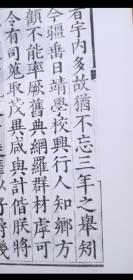 者宇内多故猶不忘三年之舉矧
今疆垂日靖學校興行人知鄉方
顧不能率厥舊典網羅群材虖可
令有司蒐取茂異咸與計偕朕將